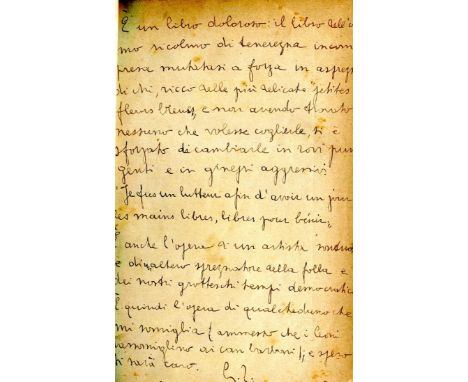 È un libro doloroso: il libro dell'
mo ricolmo di tenerezza incom
presa mutatasi a forza in asprezz
di chi, ricco delle più delicate "petites
fleurs bleues", e non avendo trovato
nessuno che volesse coglierle, si è
sforzato di cambiarle in rovi pun
genti e in ginepri aggressivi
"Je fus un lutteur afin d'avoir un jour
les mains libres, libres pour bénir,
È anche l'opera di un artista
e di altero spregiatore della folla e
dei nostri grotteschi tempi democratici
È quindi l'opera di qualcheduno che
mi somiglia (ammesso che i leoni
rassomiglino ai can barboni); e spero
ti sarà caro.